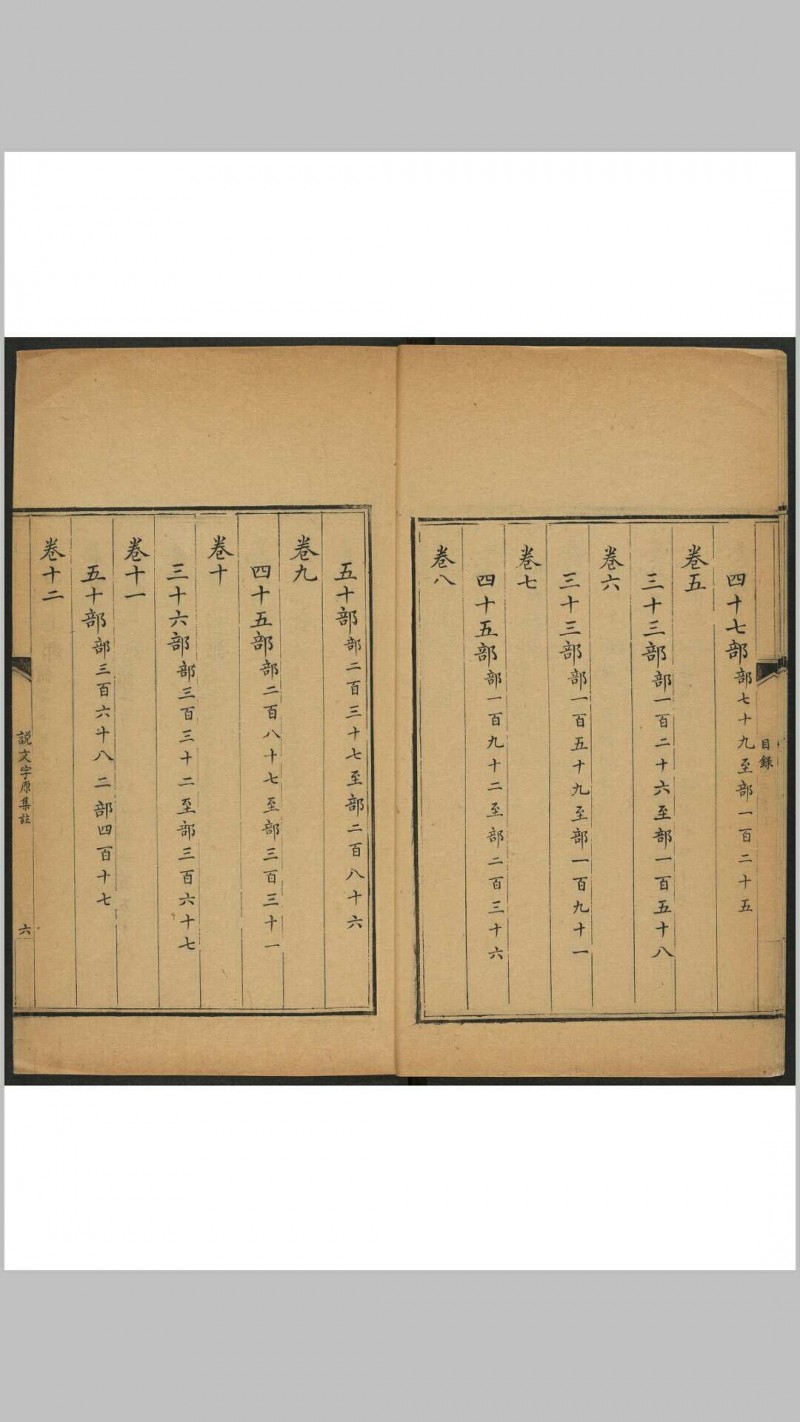 目錄
四十七部部七十九至部一百二十五
卷五
三十三部部一百二十六至部一百五十八
卷六
三十三部部一百五十九至部一百九十一
卷七
四十五部部一百九十二至部二百三十六
卷八
五十部部二百三十七至部二百八十六
卷九
四十五部部二百八十七至部三百三十一
卷十
三十六部部三百三十二至部三百六十七
卷十一
五十部部三百六十八二部四百十七
卷十二
說文字原集註
六